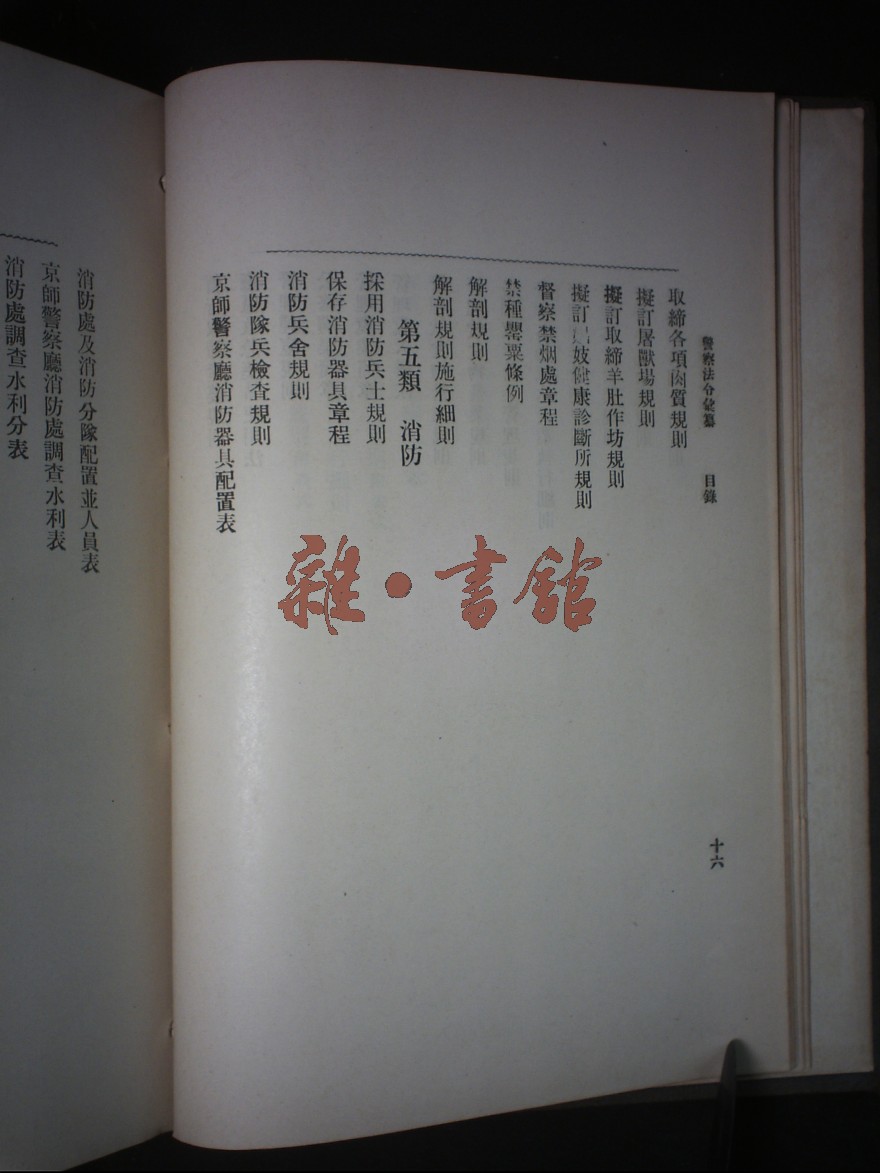 警察法令彙纂 目錄
十六
取締各項肉質規則
擬訂屠獸場規則
擬訂取締羊肚作坊規則
擬訂娼妓健康診斷所規則
督察禁烟處章程
禁種罌粟條例
解剖規則
解剖規則施行細則
第五類 消防
採用消防兵士規則
保存消防器具章程
消防兵舍規則
消防隊兵檢查規則
京師警察廳消防器具配置表
消防處及消防分隊配置並人員表
京師警察廳消防處調查水利表
消防處調查水利分表
雜·書館